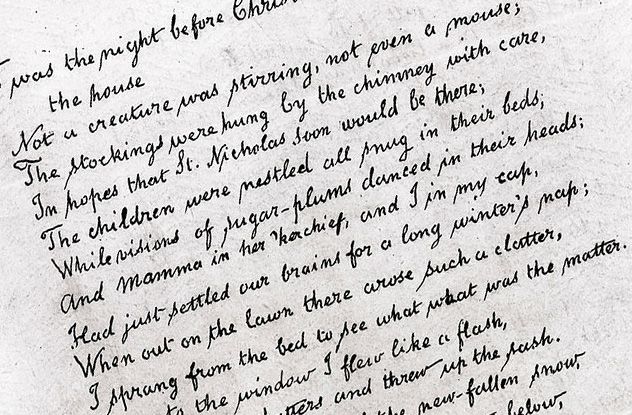 was the night before Christ
the house
Not a creature was stirring, not even a mouse;
The stockings were hung by the chimney with care,
In hopes that St. Nicholas soon would be there;
The children were nestled all snug in their beds;
While visions of sugar-plums danced in their heads;
And mamma in her 'kerchief, and I in my cap,
Had just settled our brains for a long winter's nap;
When out on the lawn there arose such a clatter,
I sprang from the bed to see what what was the matter.
to the window I flew like a flash,
and threw up the sash.
the new-fallen snow,
below,